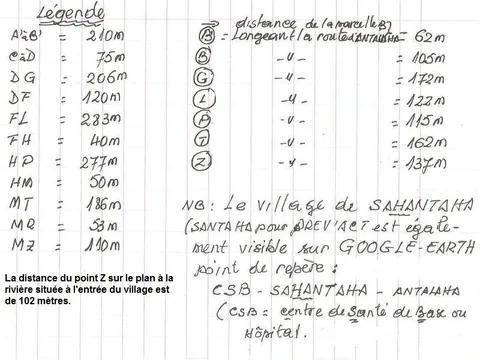 Légende
A'àB' = 210m
CàD = 75m
DG = 206m
DF = 120m
FL = 283m
FH = 40m
HP = 277m
HM = 50m
MT = 186m
MR = 53m
MZ = 110m
La distance du point Z sur le plan à la
rivière située à l'entrée du village est
de 102 mètres.
distance de la parcelle B)
(B) = Longeant la route d'ANTALAHA = 62m
(B) -〃- = 105m
(G) -〃- = 172m
(L) -〃- = 122m
(P) -〃- = 115m
(T) -〃- = 162m
(Z) -〃- = 137m
NB: Le village de SAHANTAHA
(SANTAHA pour PREV'ACT est égale-
ment visible sur GOOGLE-EARTH
point de repère:
CSB - SAHANTAHA - ANTALAHA
(CSB = centre de Santé de Base ou
Hôpital.